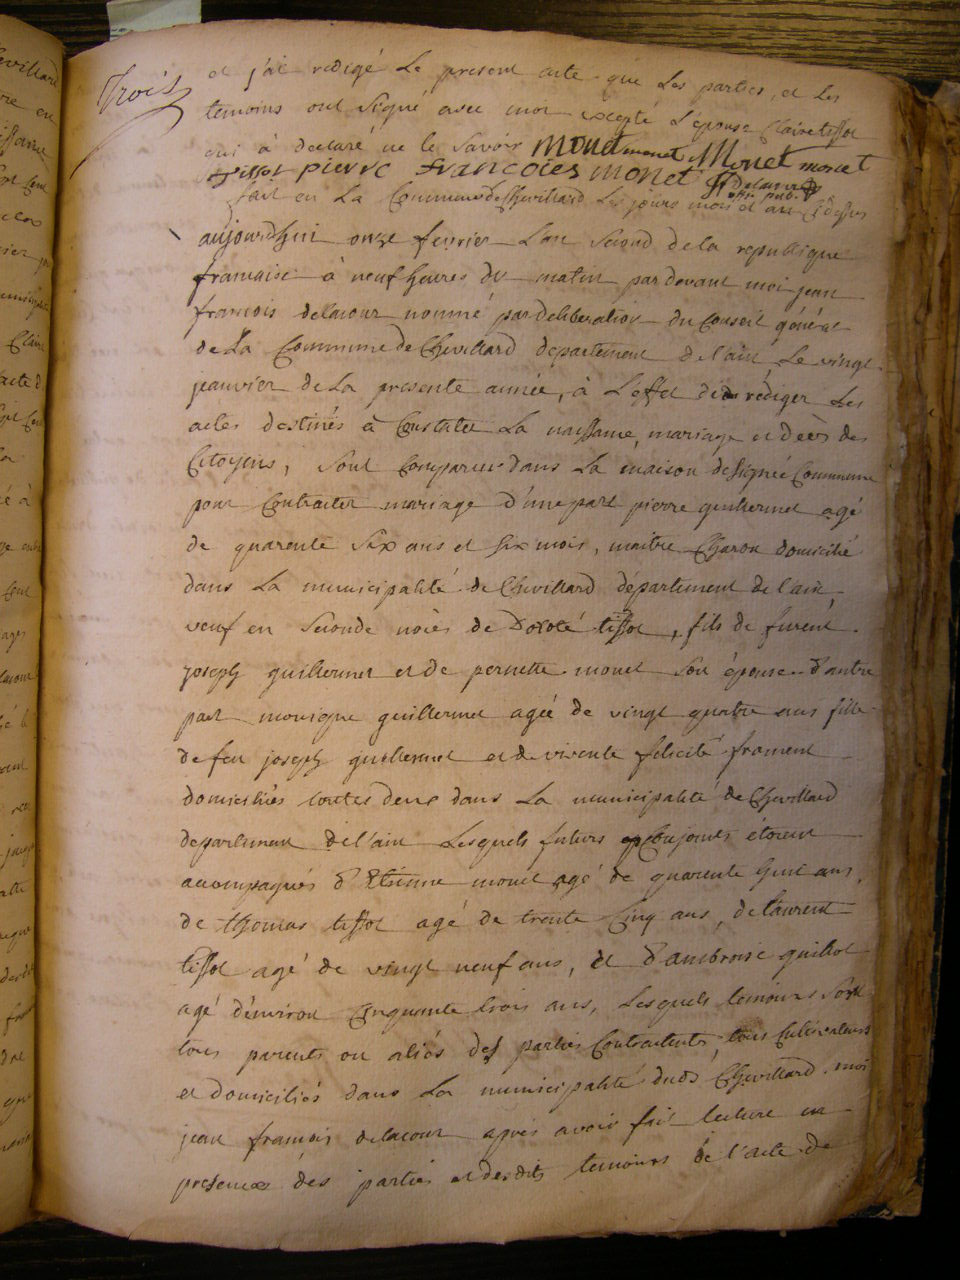 Trois
et j'ai redigé Le present acte que Les parties, et Les
temoins ont Signé avec moi excepté L'épouse Claire tissot
qui à declaré ne le Savoir monet monet Monet monet
tissot pierre francoies monet Delacour off. pub.
fait en La Commune de Chevillard Les jours mois et an Ci dessus
aujourdhui onze fevrier L'an Second de la republique
francaise à neuf heures du matin par devant moi jean
francois delacour nommé par deliberation du Conseil général
de La Commune de Chevillard departement de l'ain Le vingt
jeanvier de La presente année, à L'effet de rédiger Les
actes destinés à Constater La naissance, mariage et décès des
Citoyens, Sont Comparus dans La maison designée Commune
pour Contracter mariage d'une part pierre guillermet agé
de quarente Six ans et Six mois, maitre Charon domicilié
dans La municipalité de Chevillard département de l'ain
veuf en Seconde noces de Doroté tissot, fils de furent
joseph guillermet et de pernette monet Son épouse d'autre
part monique guillermet agée de vingt quatre ans fille
de feu joseph guillermet et de vivente felicité froment
domiciliés toutes deux dans La municipalité de Chevillard
departement de l'ain Lesquels futurs Conjoints étoient
accompagnés d'Etienne monet agé de quarente huit ans,
de thomas tissot agé de trente Cinq ans, de laurent
tissot agé de vingt neuf ans, et d'ambroise guillot
agé d'environ Cinquante trois ans, Lesquels temoins Sont
tous parents ou aliés des parties Contractentes, tous Cultivateurs
et domiciliés dans La municipalité dudt Chevillard. moi
jean francois delacour apres avoir fait lecture en
presence des parties et desdits temoins de l'acte de